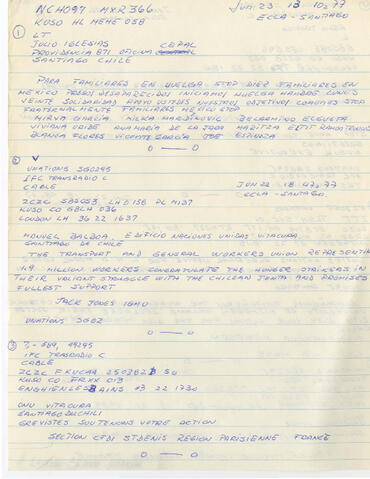 NCH097 MXR366 JUN. 23 - 13 10,77
KUSO HL MEHE 058 ECLA - SANTIAGO
①
LT
JULIO IGLESIAS CEPAL
PROVIDENCIA 871 OFICINA
SANTIAGO CHILE
PARA FAMILIARES EN HUELGA STOP DIEZ FAMILIARES EN
MEXICO PRESOS DESAPARECIDOS INICIAMOS HUELGA HAMBRE LUNES
VEINTE SOLIDARIDAD APOYO USTEDES NUESTROS OBJETIVOS COMUNES STOP
FRATERNALMENTE FAMILIARES MEXICO STOP
MIRVA GARCIA MILKA BELARMINO ELGUETA
VIVIANA URIBE ANA MARIA DE LA JARA MARITZA ELTIT
BLANCA FLORES VICENTE GARCIA JOSE ESPINOZA
— 0 — 0 —
②
UNATIONS SG0295
IFC TRANSRADIO C
CABLE JUN 22 - 18 42,77
ECLA - SANTIAGO.
ZCZC LHD158 PL M137
KUSO CO GBLH 036
LONDON LH 36 22 1637
MANUEL BALBOA. EDIFICIO NACIONES UNIDAS VITACURA.
SANTIAGO DE CHILE
THE TRANSPORT AND GENERAL WORKERS UNION REPRESENTING
1.9 MILLION WORKERS CONGRATULATE THE HUNGER STRIKERS IN
THEIR VALIANT STRUGGLE WITH THE CHILEAN JUNTA AND PROMISES
FULLEST SUPPORT
JACK JONES
UNATIONS
— 0 — 0 —
③
IFC TRASRADIO C
CABLE
ZCZC
KUSO CO FRXX 013
22 1730
ONU VITACURA
SANTIAGODUCHILI
GREVISTES SOUTENONS VOTRE ACTION
SECTION CFDT STDENIS REGION PARISIENNE FRANCE
— 0 — 0 —